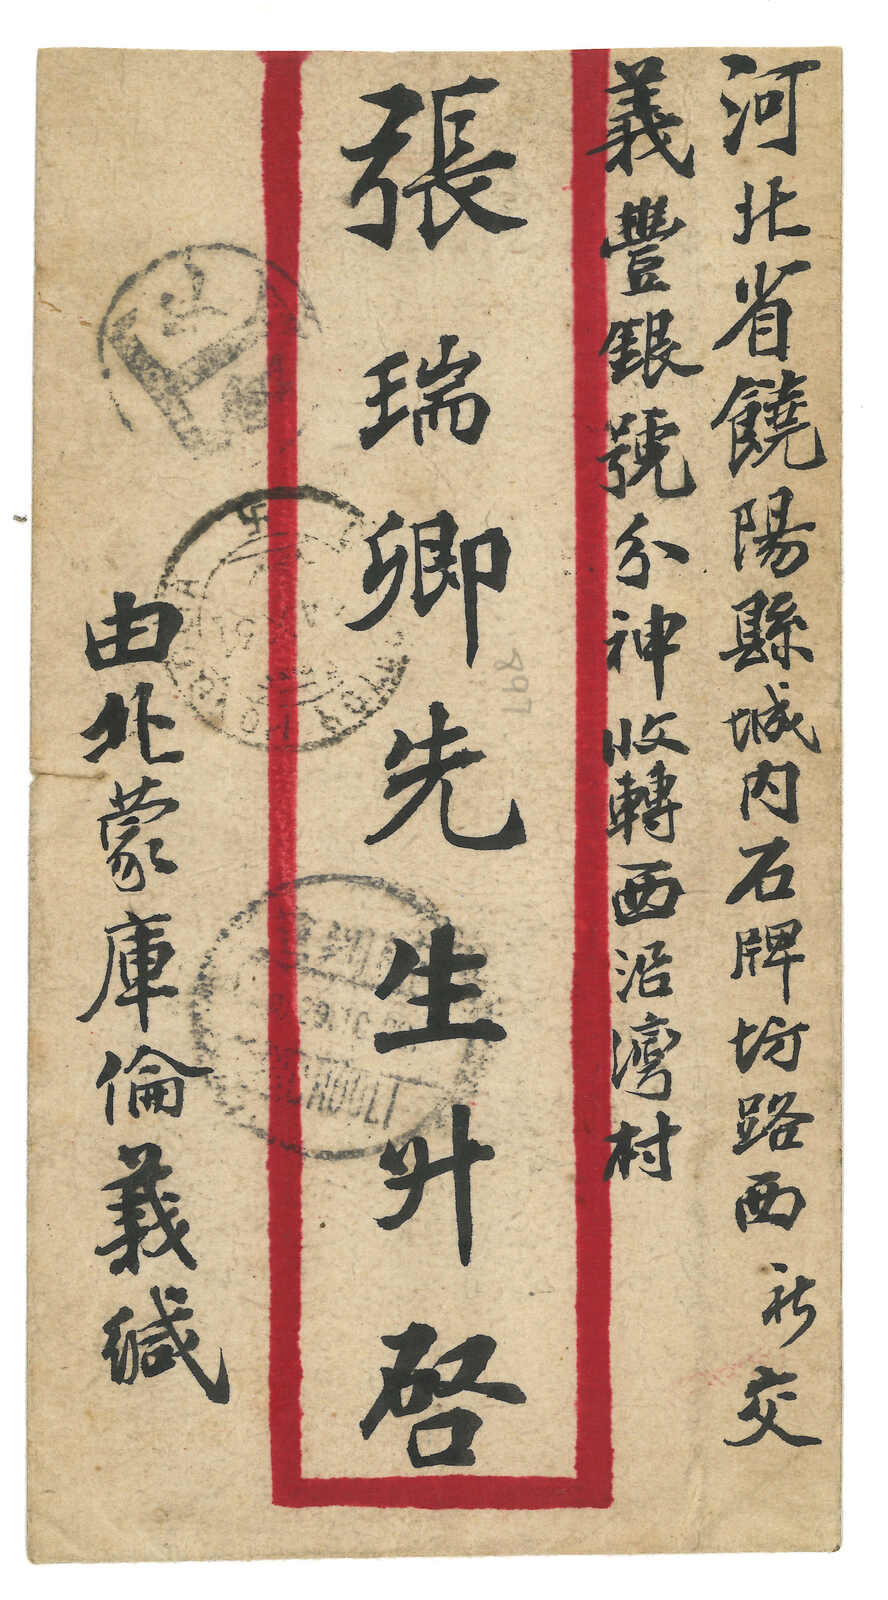 河北省饒陽縣城內石牌坊路西 祈交
義豐銀號分神收轉西沿灣村
張瑞卿先生升啓
由北蒙庫倫義緘
897